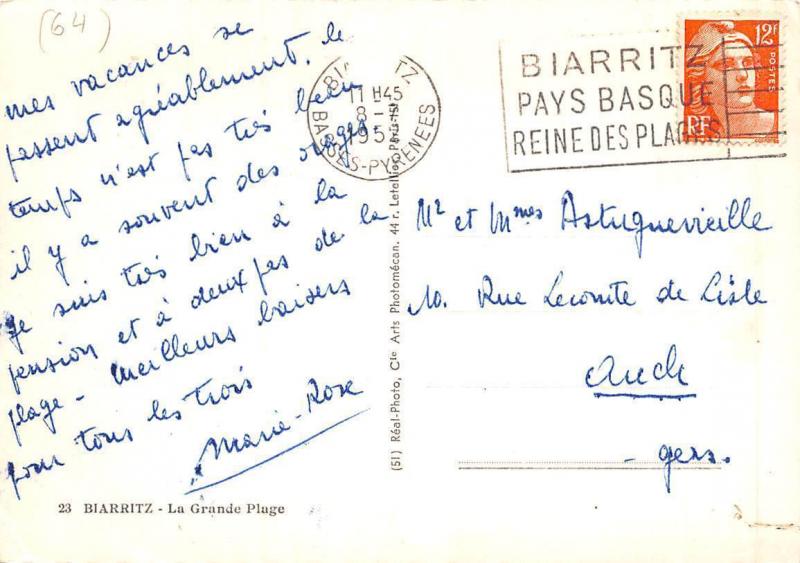 (64)
mes vacances se
passent agréablement, le
temps n'est pas très beau
il y a souvent des orages.
Je suis très bien à la
pension et à deux pas de la
plage - meilleurs baisers
pour tous les trois
Marie-Rose
23 BIARRITZ - La Grande Plage
(51) Réal-Photo, Cie Arts Photomécan. 44 r. Letellier, Paris-15e
17 H45
8 -
BASSES-PYRENEES
BIARRITZ
PAYS BASQUE
REINE DES PLAGES
12F
POSTES
RF
Mr et Mmes Astuguevieille
10. Rue Lecomte de Lisle
Auch
- Gers.